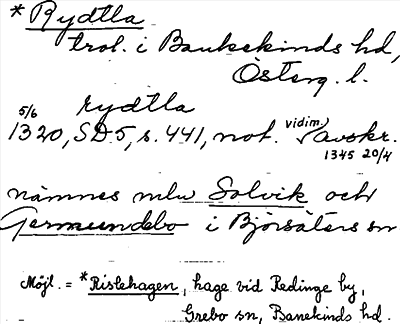 * Rydtla
trol. i Bankekinds hd,
Österg. l.
rydtla
5/6
1320, SD5, s. 441, not. vidim. avskr.
1345 20/4
nämnes mlu Solvik och
Germundebo i Björsäters sn
Möjl. = *Ristehagen, hage vid Redinge by,
Grebo sn, Banekinds hd.